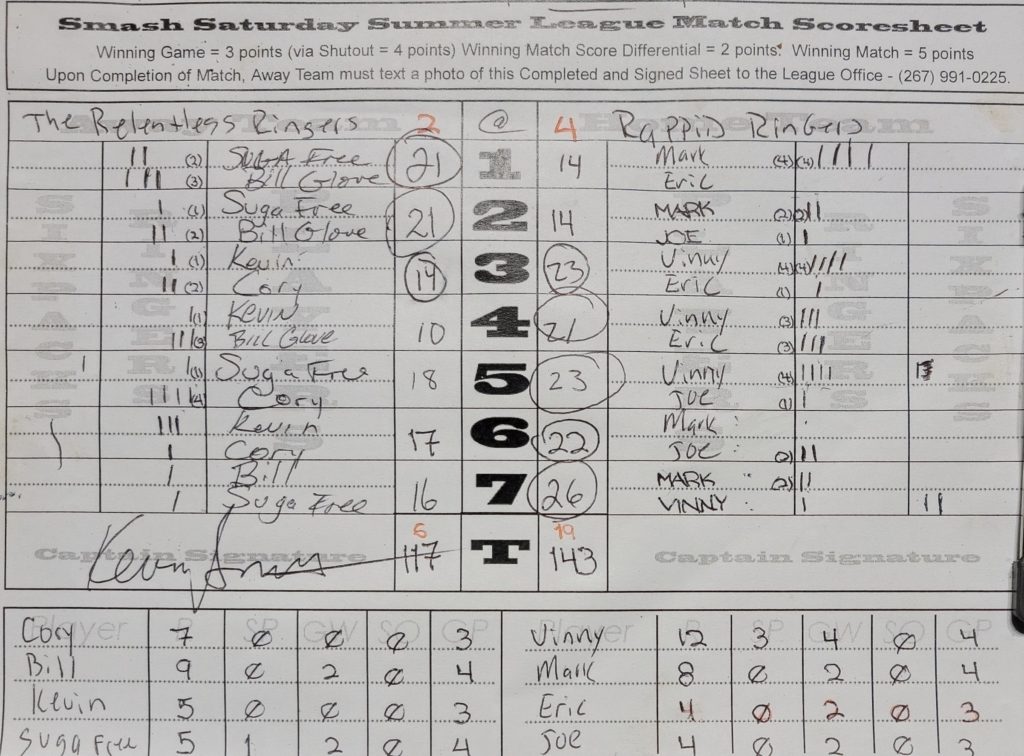 Smash Saturday Summer League Match Scoresheet
Winning Game = 3 points (via Shutout = 4 points) Winning Match Score Differential = 2 points. Winning Match = 5 points
Upon Completion of Match, Away Team must text a photo of this Completed and Signed Sheet to the League Office - (267) 991-0225.
The Relentless Ringers 2 @ 4 Rappiid Ringers
(2) Suga Free 21 1 14 Mark (4)(4)
(3) Bill Glove Eric
(1) Suga Free 21 2 14 MARK (2)(2)
(2) Bill Glove JOE (1)
(1) Kevin 19 3 23 Vinny (4)(4)
(2) Cory Eric (1)
(1) Kevin 10 4 21 Vinny (3)
(3) Bill Glove Eric (3)
(1) Suga Free 18 5 23 Vinny (4)
(4) Cory Joe (1)
Kevin 17 6 22 Mark
Cory Joe (2)
Bill 16 7 26 MARK (2)
Suga Free VINNY
6 19
Captain Signature 117 T 143 Captain Signature
Player P SP GW SO GP Player P SP GW SO GP
Cory 7 0 0 0 3 Vinny 12 3 4 0 4
Bill 9 0 2 0 4 Mark 8 0 2 0 4
Kevin 5 0 0 0 3 Eric 4 0 2 0 3
Suga Free 5 1 2 0 4 Joe 4 0 2 0 3